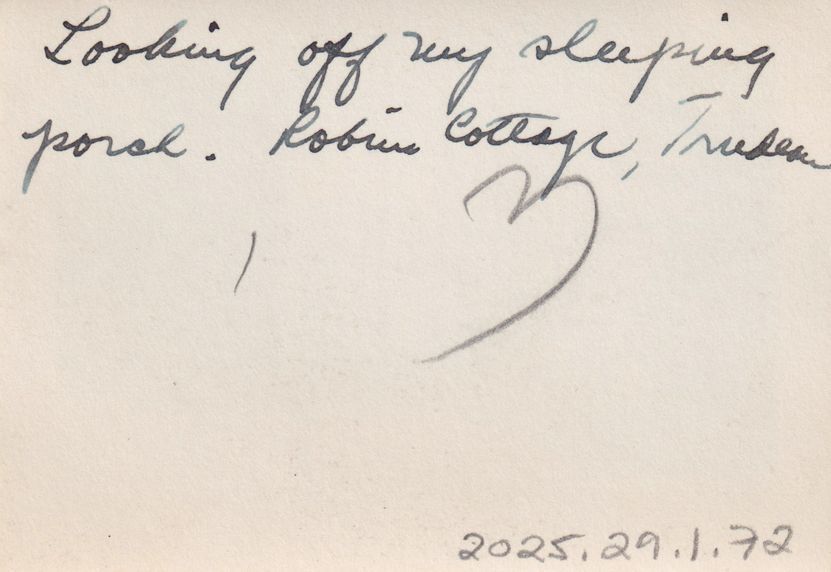 Looking off my sleeping
porch. Robin Cottage, Trudeau
2025.29.1.72